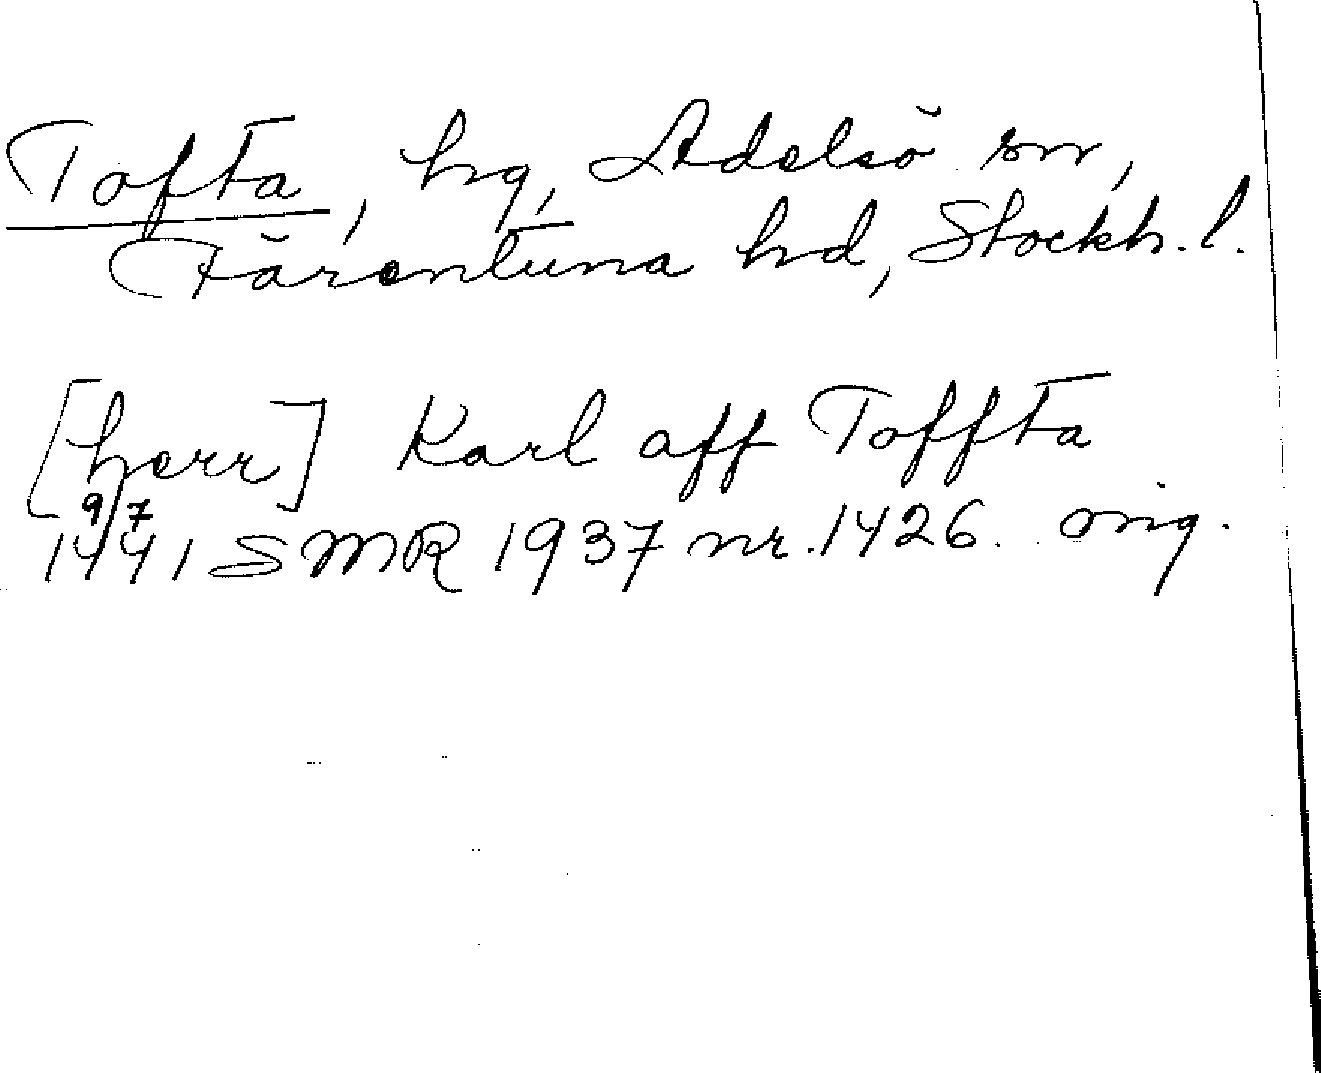 Tofta, hg, Adelsö sn,
Färentuna hd, Stockh. l.
[herr] Karl aff Toffta
9/7
1441 SMR 1937 nr. 1426. orig.